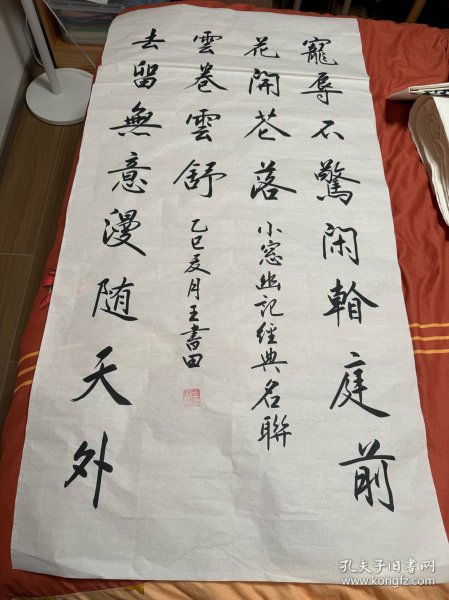 寵辱不驚閑看庭前
花開花落
小窓幽記經典名聯
去留無意漫随天外
雲卷雲舒
乙巳夏月王書田
孔夫子旧书网
www.kongfz.com